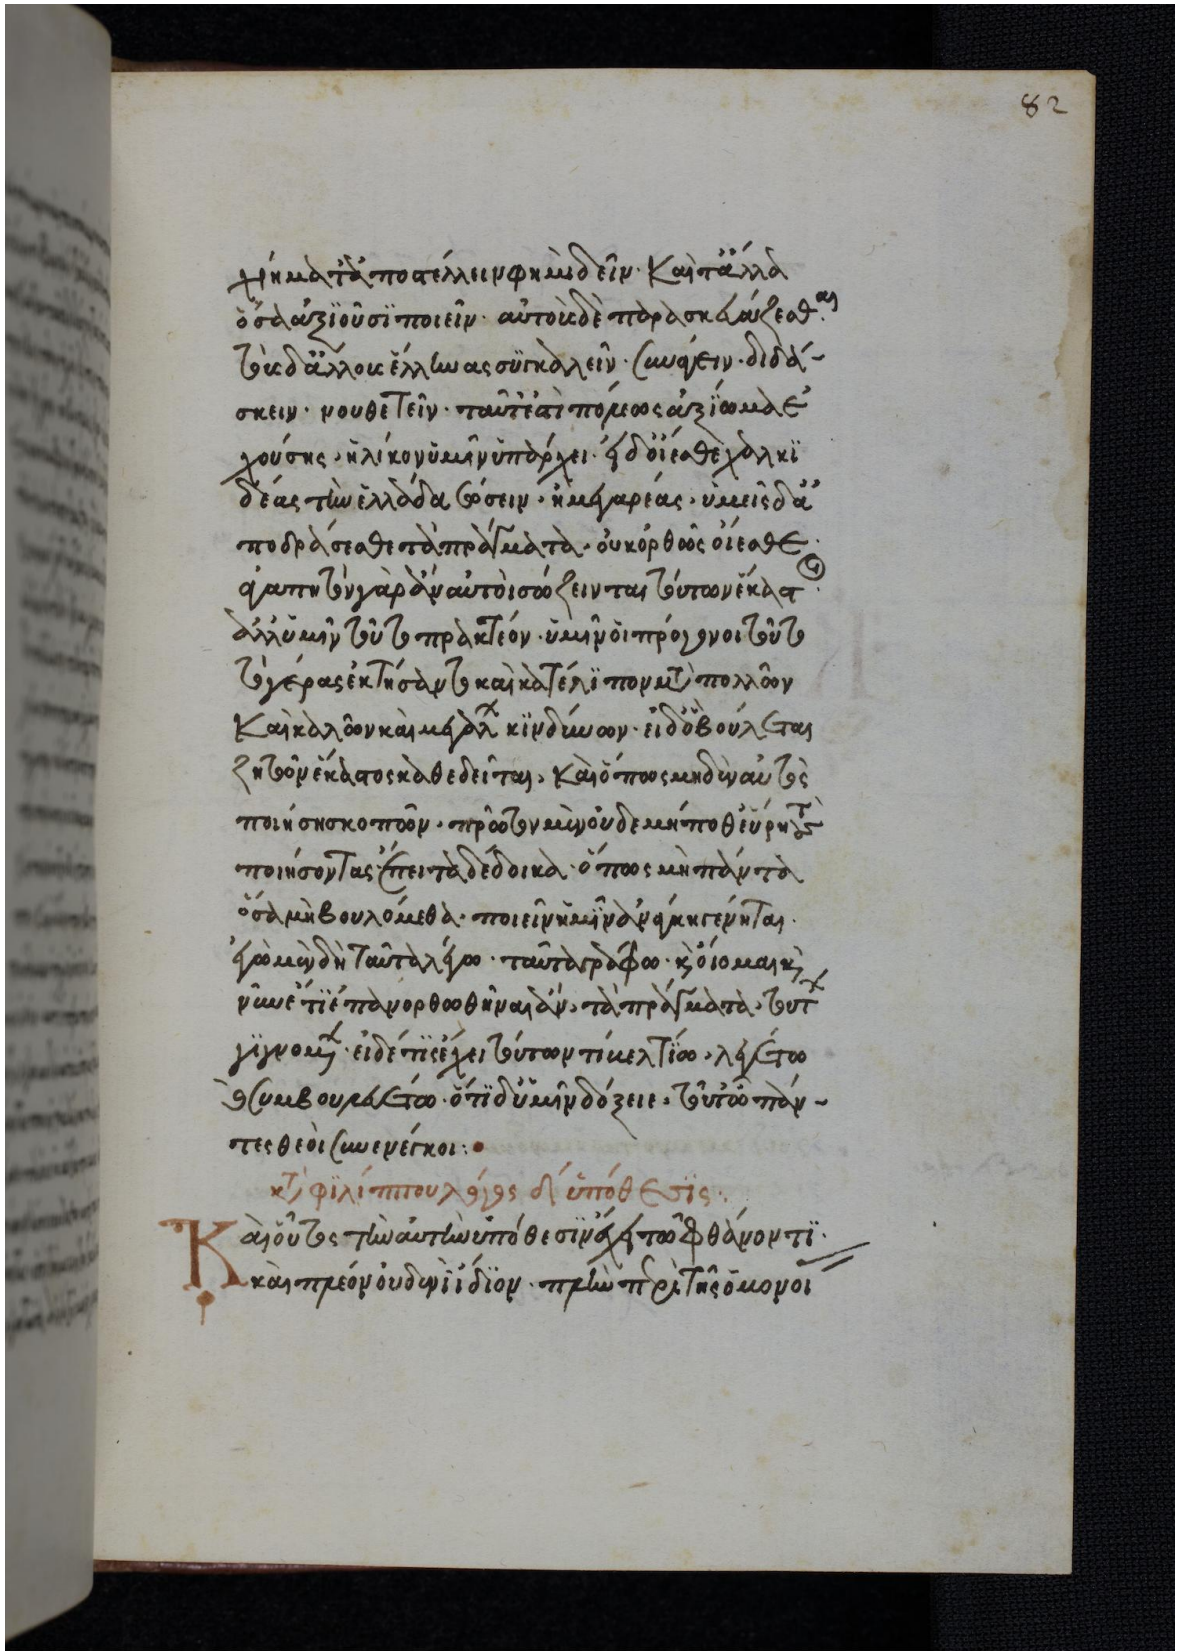 82
χρήματα ἀποστέλλειν φημὶ δεῖν· καὶ τἄλλα
ὅσα ἀξιοῦσι ποιεῖν· αὐτοὺς δὲ παρασκευάζεσθαι
τοὺς δ' ἄλλους ἕλληνας συγκαλεῖν· συνάγειν· διδά-
σκειν· νουθετεῖν· ταῦτ' ἐστὶ πόλεως ἀξίωμα ἐ
χούσης, ἡλίκον ὑμῖν ὑπάρχει· εἰ δ' οἴεσθε χαλκι
δέας τὴν ἑλλάδα σώσειν, ἢ μεγαρέας, ὑμεῖς δ' ἀ
ποδράσεσθαι τὰ πράγματα, οὐκ ὀρθῶς οἴεσθε·
ἀγαπητὸν γὰρ ἂν αὐτοὶ σώζωνται τούτων ἕκαστοι·
ἀλλ' ὑμῖν τοῦτο πρακτέον· ὑμῖν οἱ πρόγονοι τοῦτο
τὸ γέρας ἐκτήσαντο καὶ κατέλιπον μετὰ πολλῶν
καὶ καλῶν καὶ μεγάλων κινδύνων· εἰ δ' ὃ βούλεται
ζητῶν ἕκαστος καθεδεῖται, καὶ ὅπως μηδὲν αὐτὸς
ποιήσῃ σκοπῶν, πρῶτον μὲν οὐδὲ μήποθ' εὕρῃ τοὺς
ποιήσοντας· ἔπειτα δέδοικα· ὅπως μὴ πάντα
ὅσα μὴ βουλόμεθα· ποιεῖν ἡμῖν ἀνάγκη γένηται·
ἐγὼ μὲν δὴ ταῦτα λέγω· ταῦτα γράφω· καὶ οἴομαι καὶ
νῦν ἔτι ἐπανορθωθῆναι ἂν, τὰ πράγματα, τούτων
γιγνομένων· εἰ δέ τις ἔχει τούτων τι βελτίω, λεγέτω
καὶ συμβουλευέτω· ὅ τι δ' ὑμῖν δόξειε, τοῦτ' ὦ πάν-
τες θεοὶ συνενέγκοι:
κατὰ φιλίππου λόγος δ' ὑπόθεσις·
Καὶ οὗτος τὴν αὐτὴν ὑπόθεσιν ἔχει τῷ φθάνοντι·
καὶ πλέον οὐδὲν ἴδιον· πλὴν περὶ τῆς ὁμονοί